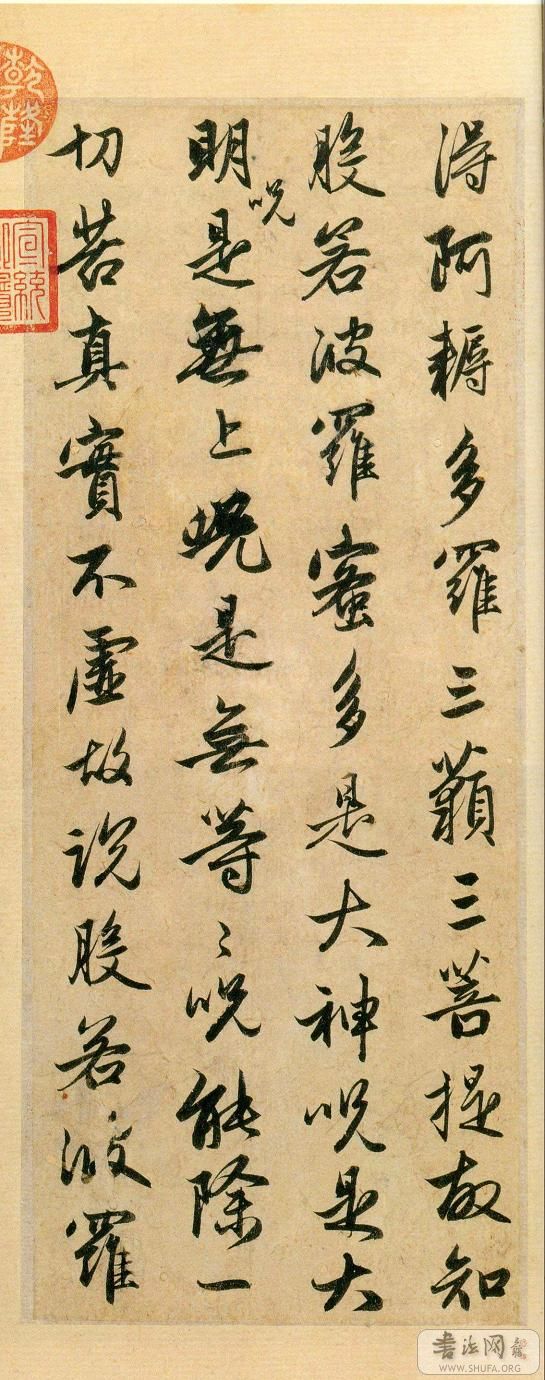 得阿耨多羅三藐三菩提故知
般若波羅蜜多是大神呪是大
明呪是無上呪是無等〻呪能除一
切苦真實不虛故説般若波羅
乾隆
宣統
書法网
WWW.SHUFA.ORG